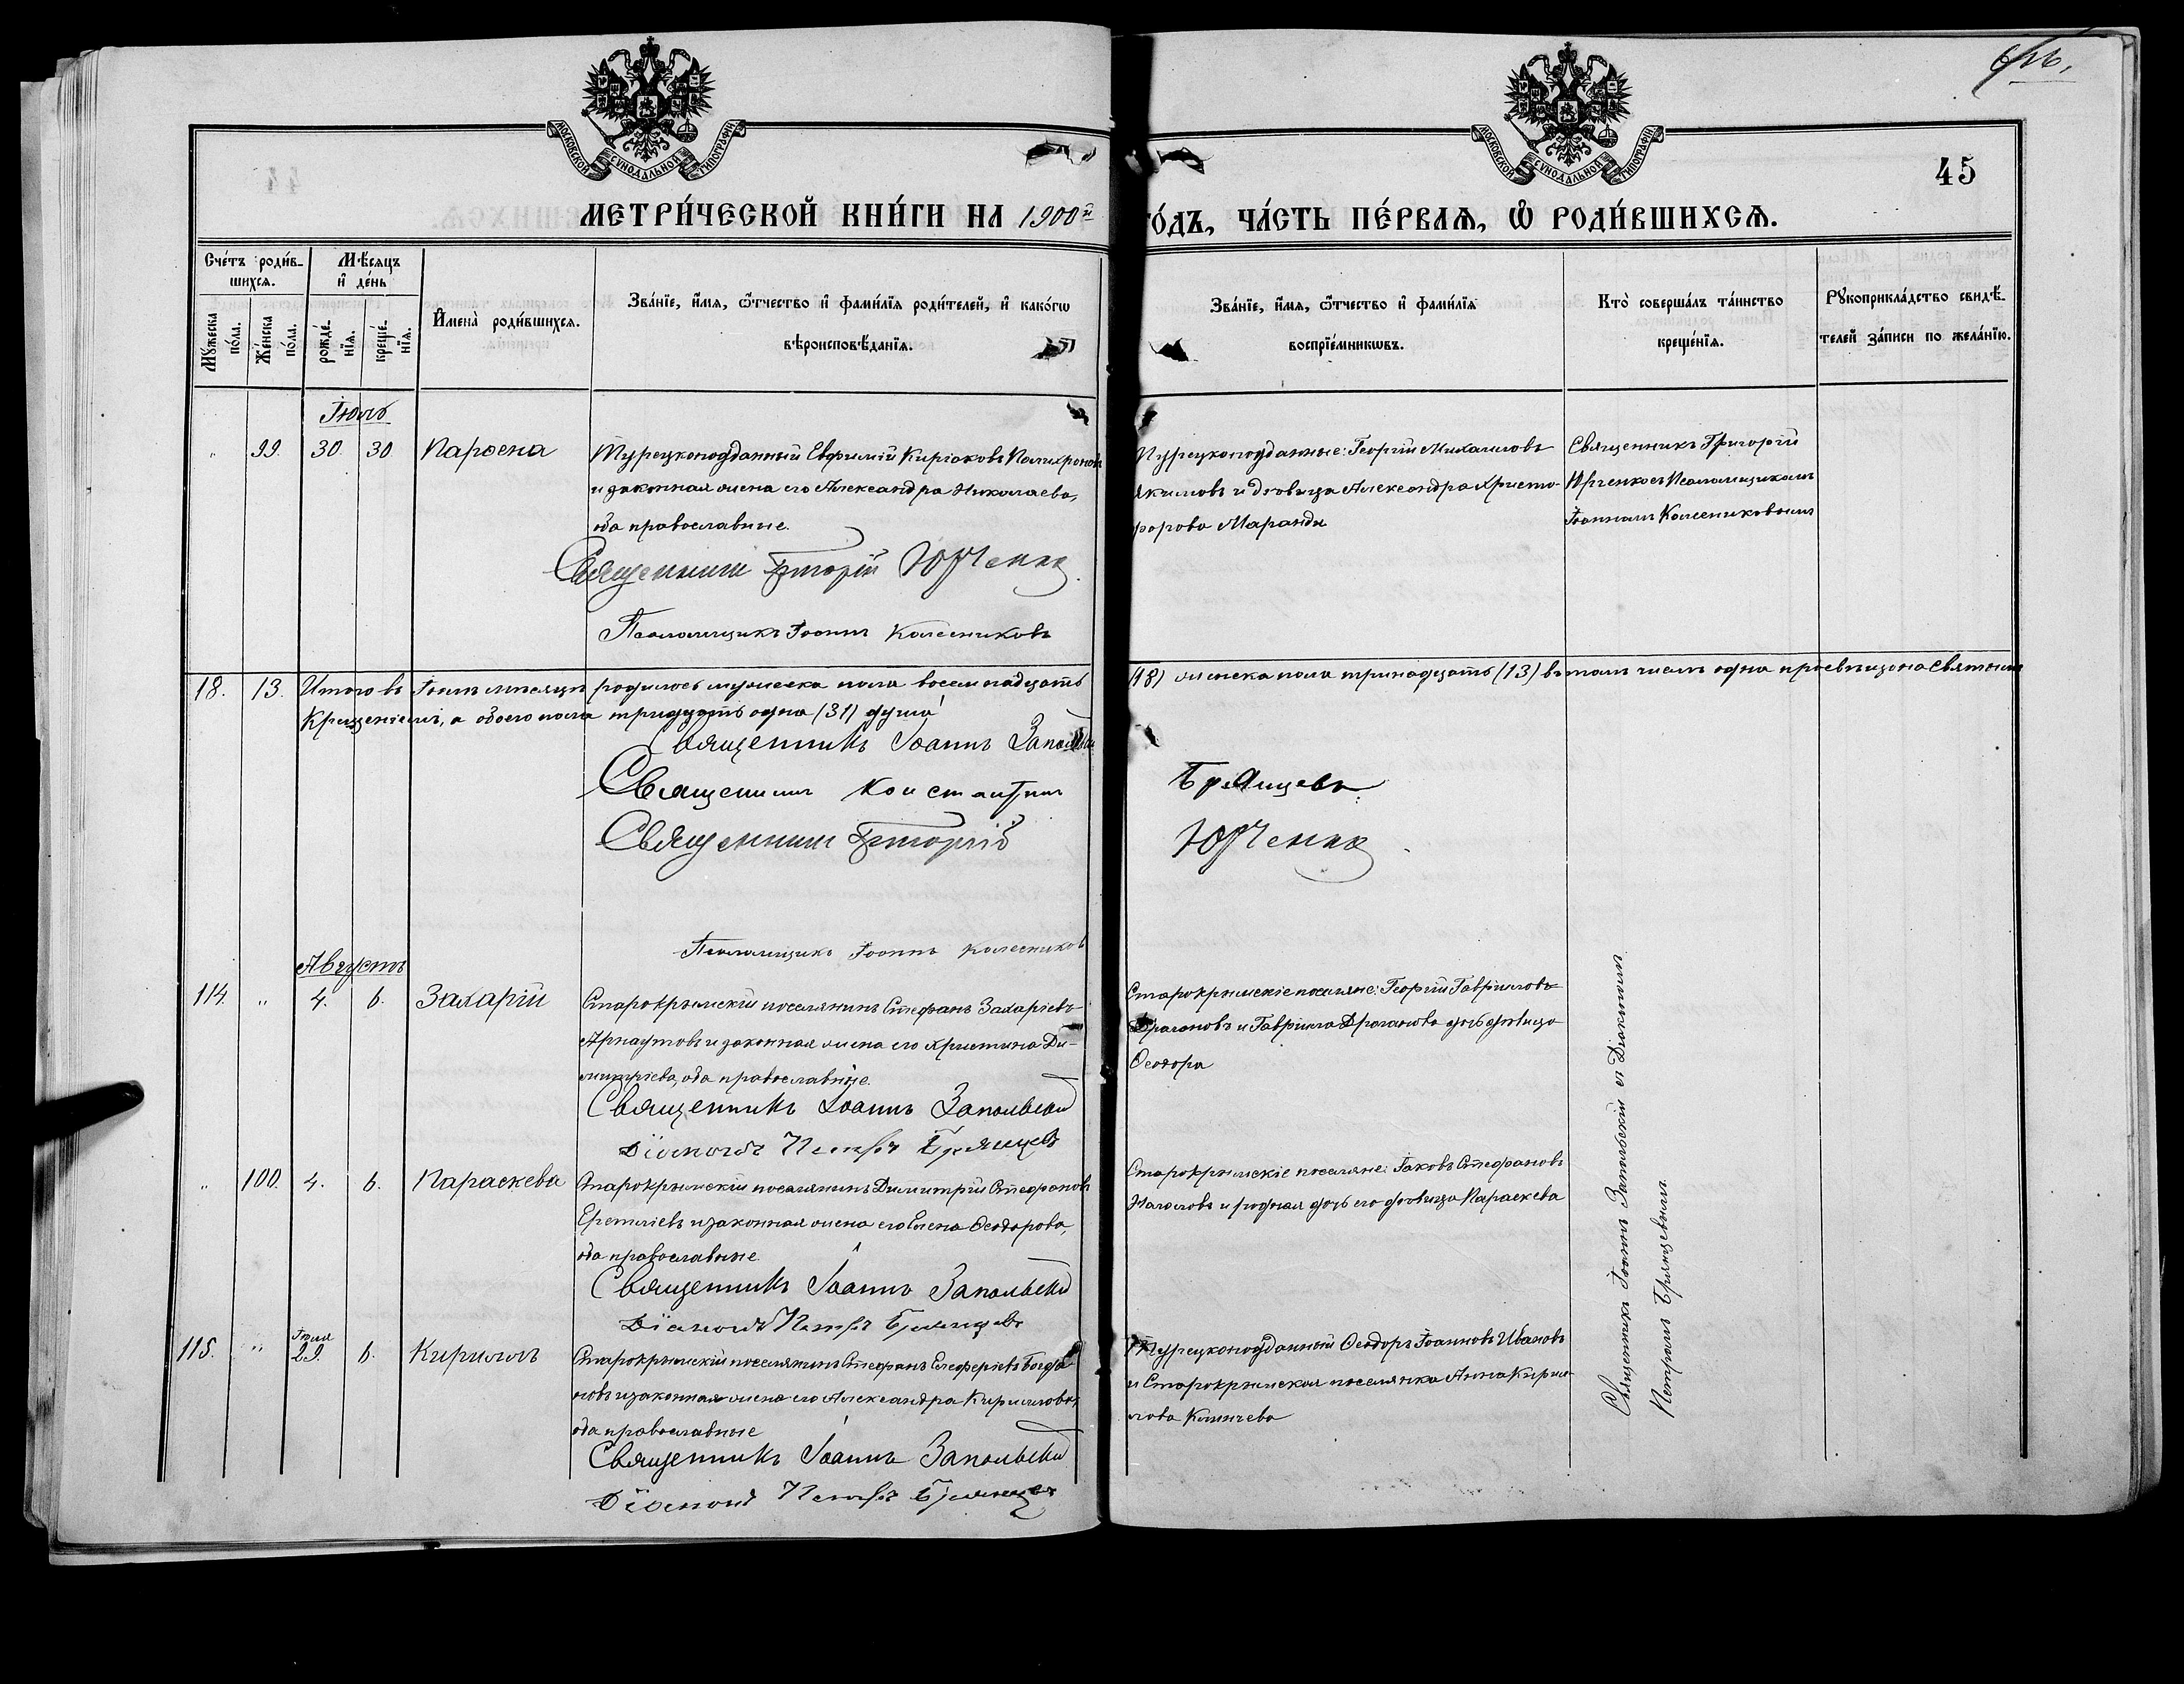 МОСКОВСКОЙ СѴНОДАЛЬНОЙ ТИПОГРАФІИ
МОСКОВСКОЙ СѴНОДАЛЬНОЙ ТИПОГРАФІИ
45
МЕТРИ́ЧЕСКОЙ КНИ́ГИ НА 1900й
ГО́ДЪ, ЧА́СТЬ ПЕ́РВАѦ, Ѽ РОДИ́ВШИХСѦ.
Сче́тъ роди́в-
шихсѧ.
Мѣ́сѧцъ
и҆ де́нь
Мꙋ́жеска
по́ла.
Же́нска
по́ла.
рожде́-
нїѧ.
креще́-
нїѧ.
И҆мена̀ роди́вшихсѧ.
Зва́нїе, и҆́мѧ, ѻ҆́тчество и҆ фами́лїѧ роди́телей, и҆ како́гѡ
вѣроисповѣ́данїѧ.
Зва́нїе, и҆́мѧ, ѻ҆́тчество и҆ фами́лїѧ
воспрїе́мникѡвъ.
Кто̀ соверша́лъ та́инство
креще́нїѧ.
Рꙋкоприкла́дство свидѣ́-
телей за́писи по жела́нїю.
Іюль
" 99. 30. 30 Парѳена
Турецкоподданный Евфимій Киріаковъ Полихроновъ
и законная жена его Александра Николаева,
оба православные.
Священникъ Григорій Юрченко
Псаломщикъ Іоаннъ Колесниковъ
Турецкоподданные: Георгій Михаиловъ
Якимовъ и дѣвица Александра Христо-
форова Маранди
Священникъ Григорій
Юрченко съ Псаломщикомъ
Іоанномъ Колесниковымъ
18. 13. Итого въ Іюлѣ мѣсяцѣ родилось мужеска пола восемнадцать
(18) женска пола тринадцать (13) въ томъ числѣ одна просвѣщена Святымъ
Крещеніемъ, а обоего пола тридцать одна (31) душа
Священникъ Іоаннъ Запольскій
Священникъ Константинъ
Брянцевъ
Священникъ Григорій
Юрченко
Псаломщикъ Іоаннъ Колесниковъ
Августъ
114. " 4. 6. Захарій
Старокрымскій поселянинъ Стефанъ Захаріевъ
Арнаутовъ и законная жена его Христина Ди-
митріева, оба православные.
Священникъ Іоаннъ Запольскій
Діаконъ Петръ Брянцевъ
Старокрымскіе поселяне: Георгій Гавріиловъ
Драгановъ и Гавріила Драганова дочь дѣвица
Ѳеодора
" 100. 4. 6. Параскева
Старокрымскій поселянинъ Димитрій Стефановъ
и законная жена его Елена Ѳеодорова,
оба православные.
Священникъ Іоаннъ Запольскій
Діаконъ Петръ Брянцевъ
Старокрымскіе поселяне: Іаковъ Стефановъ
и родная дочь его дѣвица Параскева
115. " Іюля
29. 6. Кириллъ
Старокрымскій поселянинъ Стефанъ Елеферіевъ Богда-
новъ и законная жена его Александра Кириллова,
оба православные
Священникъ Іоаннъ Запольскій
Діаконъ Петръ Брянцевъ
Турецкоподданный Ѳеодоръ Іоанновъ Ивановъ
и Старокрымская поселянка Анна Кирил-
лова
Священникъ Іоаннъ Запольскій съ Діакономъ
Петромъ Брянцевымъ